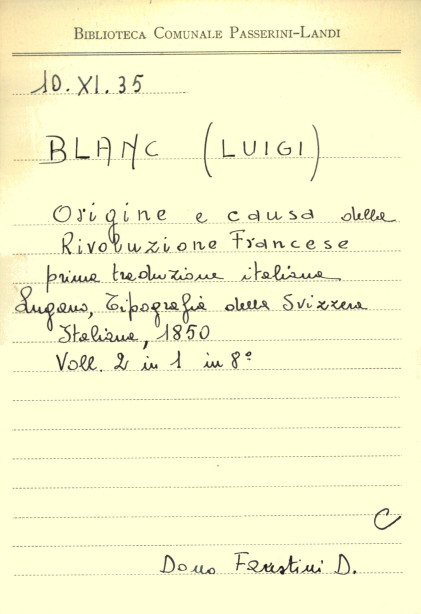 BIBLIOTECA COMUNALE PASSERINI-LANDI
10. XI. 35
BLANC (LUIGI)
Origine e causa della
Rivoluzione Francese
prima traduzione italiana
Lugano, Tipografia della Svizzera
Italiana, 1850
Voll. 2 in 1 in 8°
C
Dono Faustini D.